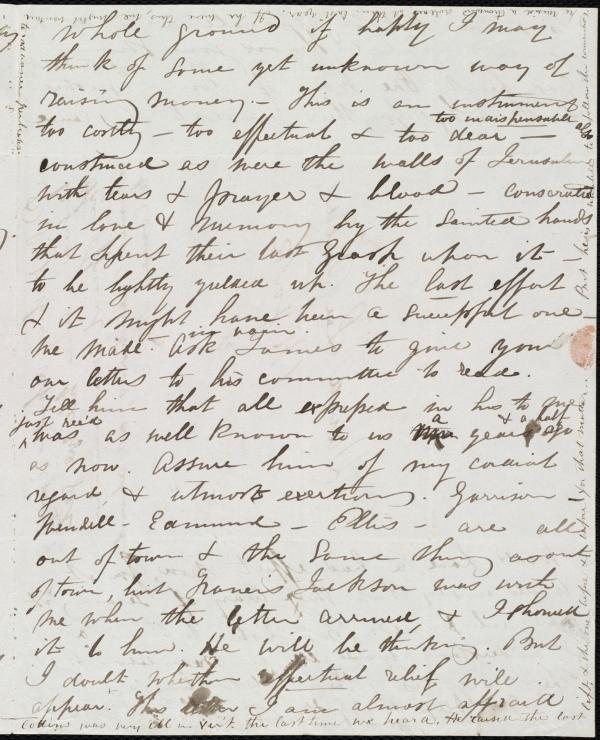 whole ground if haply I may
think of some yet unknown way of
raising money - This is an instrument
too costly - too effectual & too dear - too indispensable also
construced as were the walls of Jerusalem
with tears & prayer & blood - consecrated
in love & memory by the sainted hands
that spent their last grasp upon it -
to be lightly yielded up. The last effort
& it might have been a successful one
we made - in vain. Ask James to give you
our letters to his committee to read.
Tell him that all expressed in his to me
just rec'd was as well known to us a year & a half ago
as now. Assure him of my cordial
regard & utmost exertions. Garrison -
Wendell - Edmund - Ellis - are all
out of town & the same thing as out
of town, but Francis Jackson was with
me when the letter arrived, & I showed
it to him. He will be thinking. But
I doubt whether effectual relief will
appear. This letter I am almost affraid
Collins was very ill in the last time we heard. He raised the last